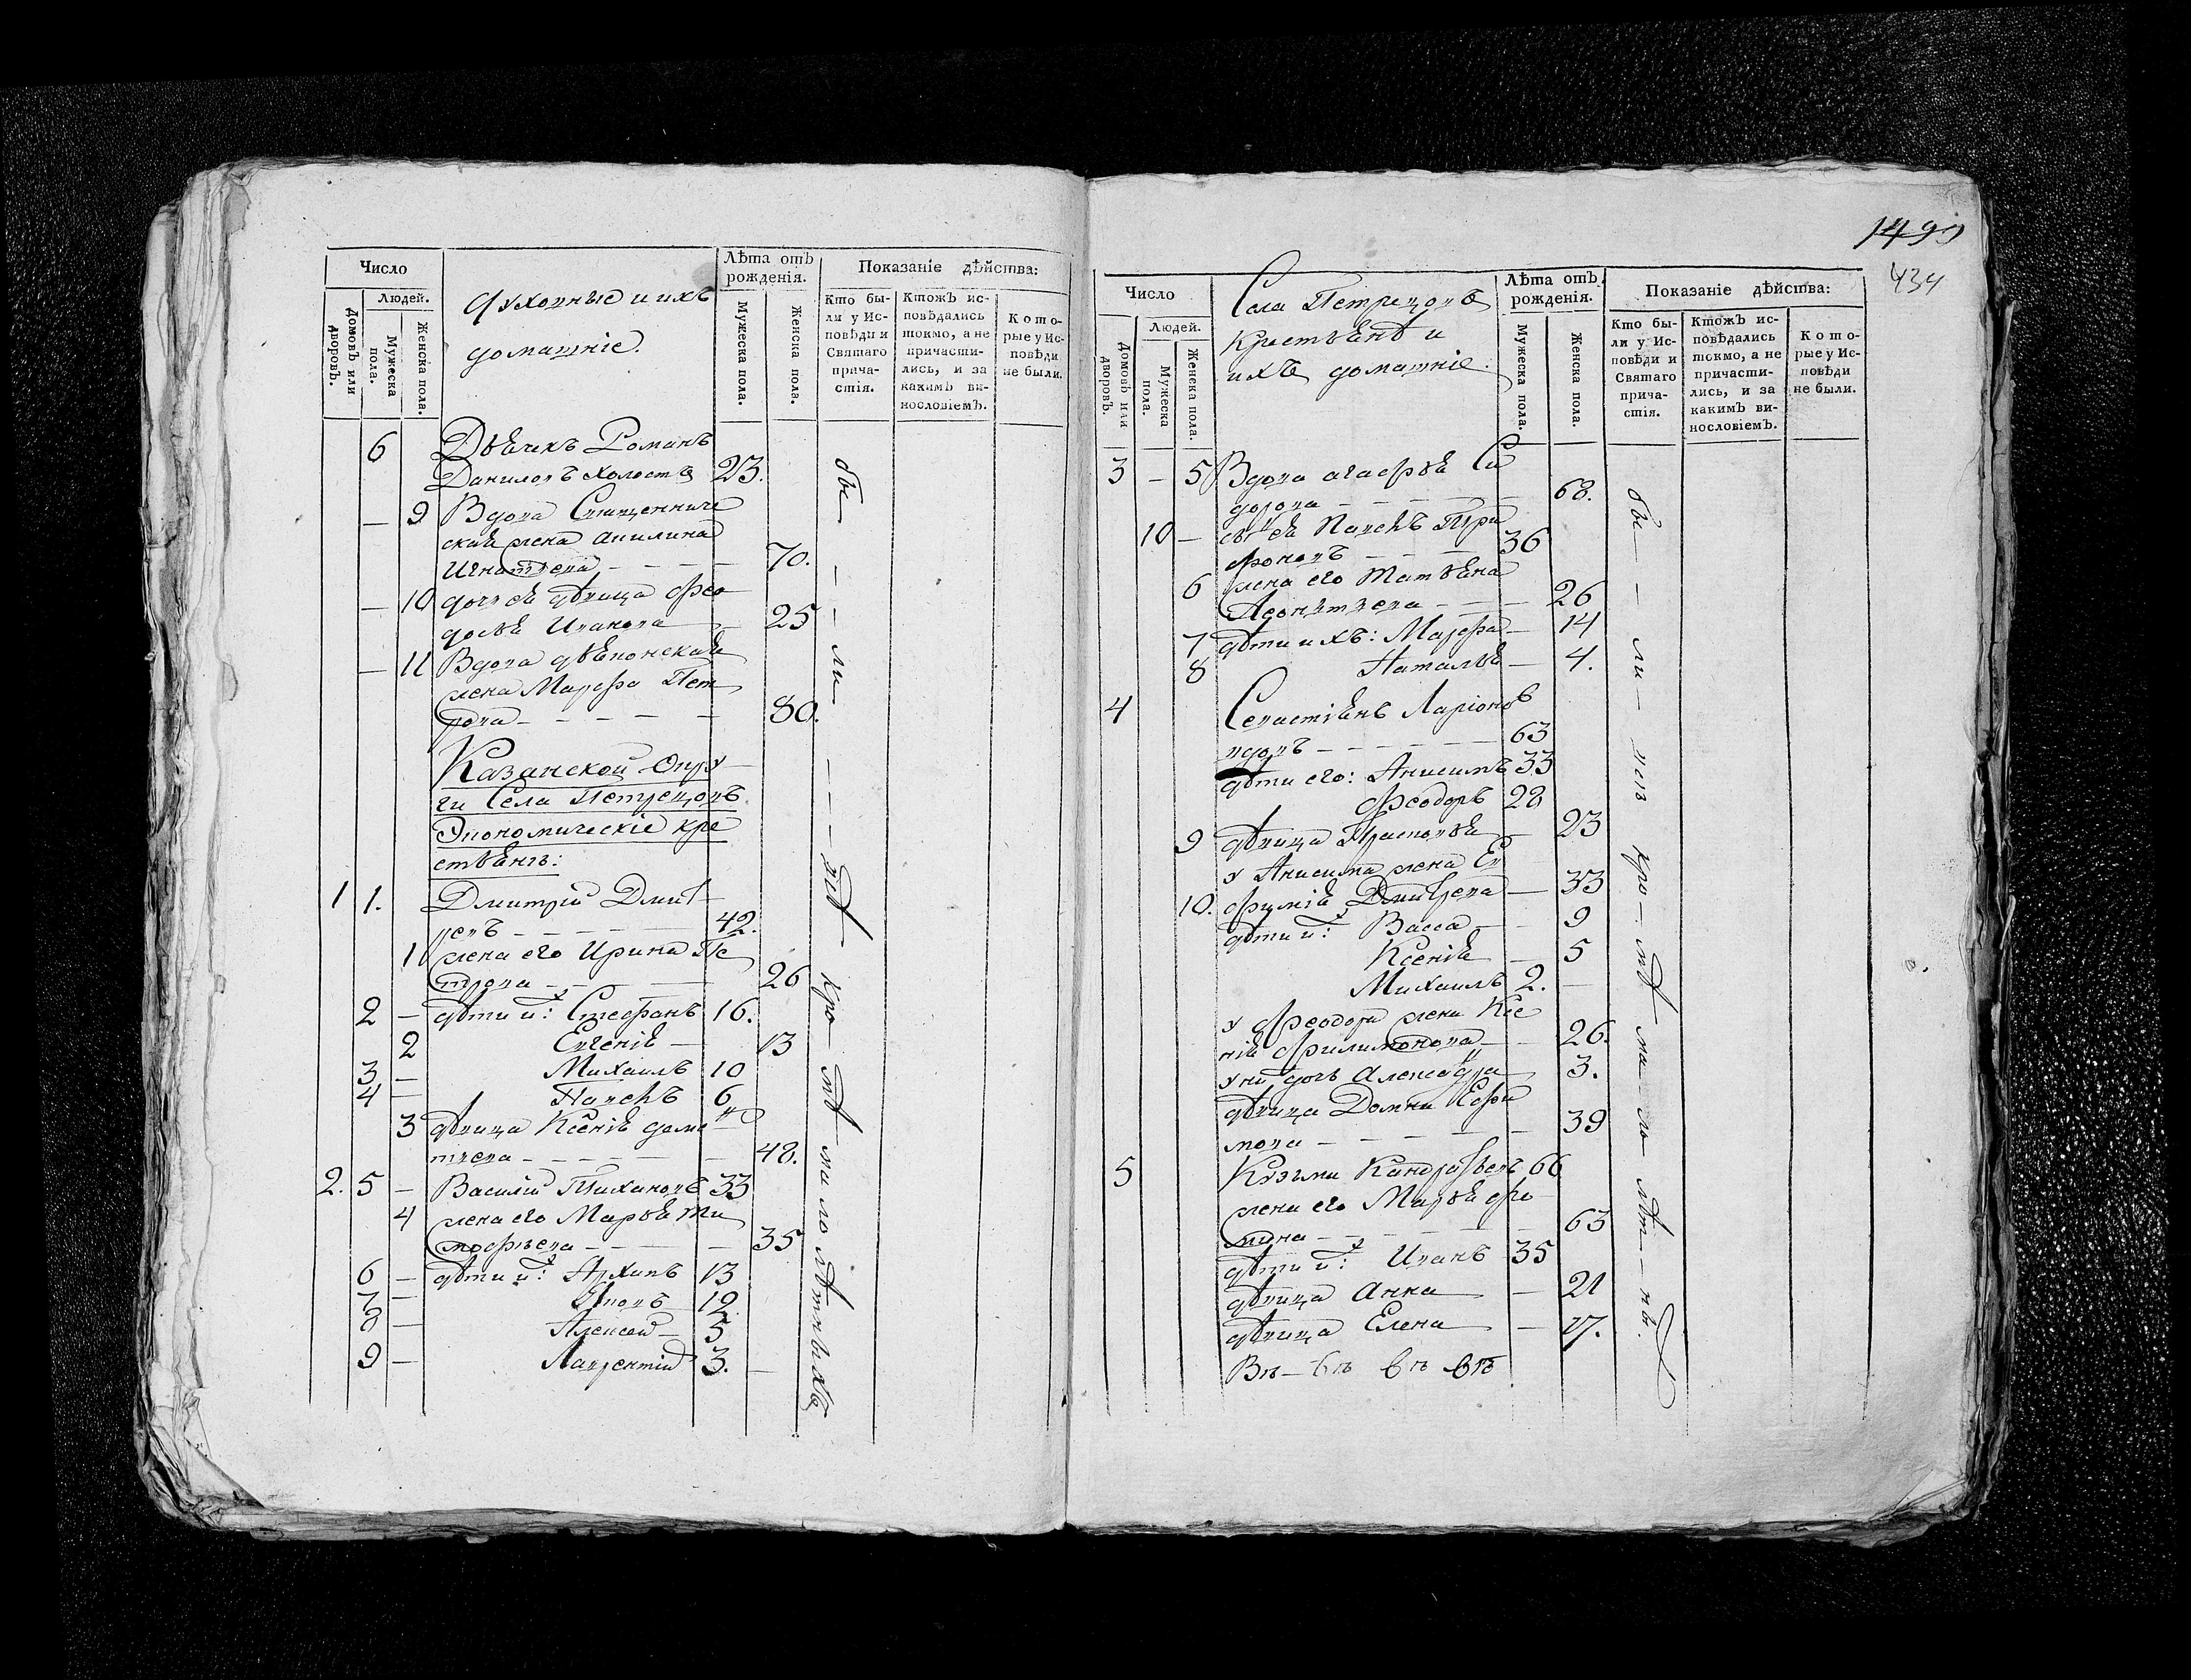 Число
Людей.
Домовъ или дворовъ.
Мужеска пола.
Женска пола.
Духовные и ихъ
домашніе.
Лѣта отъ рожденія.
Мужеска пола.
Женска пола.
Показаніе дѣйства:
Кто были у Исповѣди и Святаго причастія.
Ктожъ исповѣдались токмо, а не причастились, и за какимъ винословіемъ.
Которые у Исповѣди не были.
6 Дьячекъ Романъ
Даниловъ холостъ 23.
— 9 Вдова Священниче
ская жена Акилина
Игнатьева — — — — 70.
— 10 дочь ея дѣвица Фео
досья Иванова — 25
— 11 Вдова дьяконская
жена Марфа Пет
рова — — — — — 80.
Казанской округи
Села Петрецовъ
Экономическіе кре
стьянъ:
1 1. Дмитрій Дмит
ревъ — — — — — 42.
1 жена его Ирина Пе
трова — — — 26
2 — дѣти ихъ: Стефанъ 16.
2 Евгенія — 13
3 — Михаилъ 10
4 — Павелъ 6
3 дѣвица Ксенія деме
тьева — — — — — 48.
2. 5 — Василій Тихановъ 33
4 жена его Марья Ти
мофѣева — — — — 35
6 — дѣти ихъ: Архипъ 13
7 — Яковъ 12
8 — Алексей — 5
9 — Лаврентій 3. —
бы — — — ли — — — всѣ кро — мѣ малолѣтныхъ
1499
434
Число
Людей.
Домовъ или дворовъ.
Мужеска пола.
Женска пола.
Села Петрецовъ
крестьянѣ и
ихъ домашніе.
Лѣта отъ рожденія.
Мужеска пола.
Женска пола.
Показаніе дѣйства:
Кто были у Исповѣди и Святаго причастія.
Ктожъ исповѣдались токмо, а не причастились, и за какимъ винословіемъ.
Которые у Исповѣди не были.
3 — 5 Вдова агафья Си
дорова — — — — — 68.
10 — сынъ ея Павелъ Три
фоновъ — — — 36
6 жена его Татьяна
Леонтьева — — — 26
7 дѣти ихъ: Марфа — 14
8 Наталья — 4.
4 Севастіянъ Ларіонов
вдовъ — — — — — — 63
дѣти его: Анисимъ 33
Феодоръ 28
9 дѣвица Прасковья — 23
у Анисима жена Ев
10. фимія Дмитрева — 33
дѣти ихъ: Васса — — 9
Ксенія — 5
Михаилъ 2. —
у Феодора жена Ксе
нія Филимонова — — 26.
у нихъ дочь Александра 3.
дѣвица Домна Ефи
мова — — — — — — 39
5 Кузьма Кандратьевъ 66
жена его Марья Фо
мина — — — — — — 63
дѣти ихъ: Иванъ 35
дѣвица Анна — 21
дѣвица Елена — 17.
бы — — ли — всѣ кро — мѣ ма — ло — лѣт — нъ.